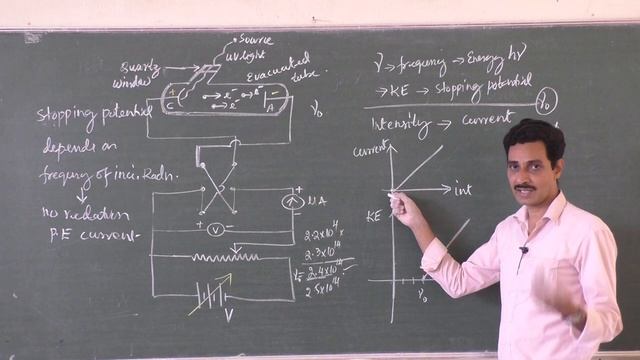 Source
uv light
Quartz
window
Evacuated
tube.
+
C
e-
e-
e-
-
A
γ₀
Stopping potential
depends on
frequency of inci. Radn.
no radiation
P.E current.
+ V -
+
μA
-
V
2.2×10¹⁴ ×
2.3×10¹⁴
γ₀ = 2.4×10¹⁴
2.5×10¹⁴
γ → frequency → Energy hγ
→ KE → Stopping potential
γ₀
Intensity → Current
Current
int
KE
γ₀